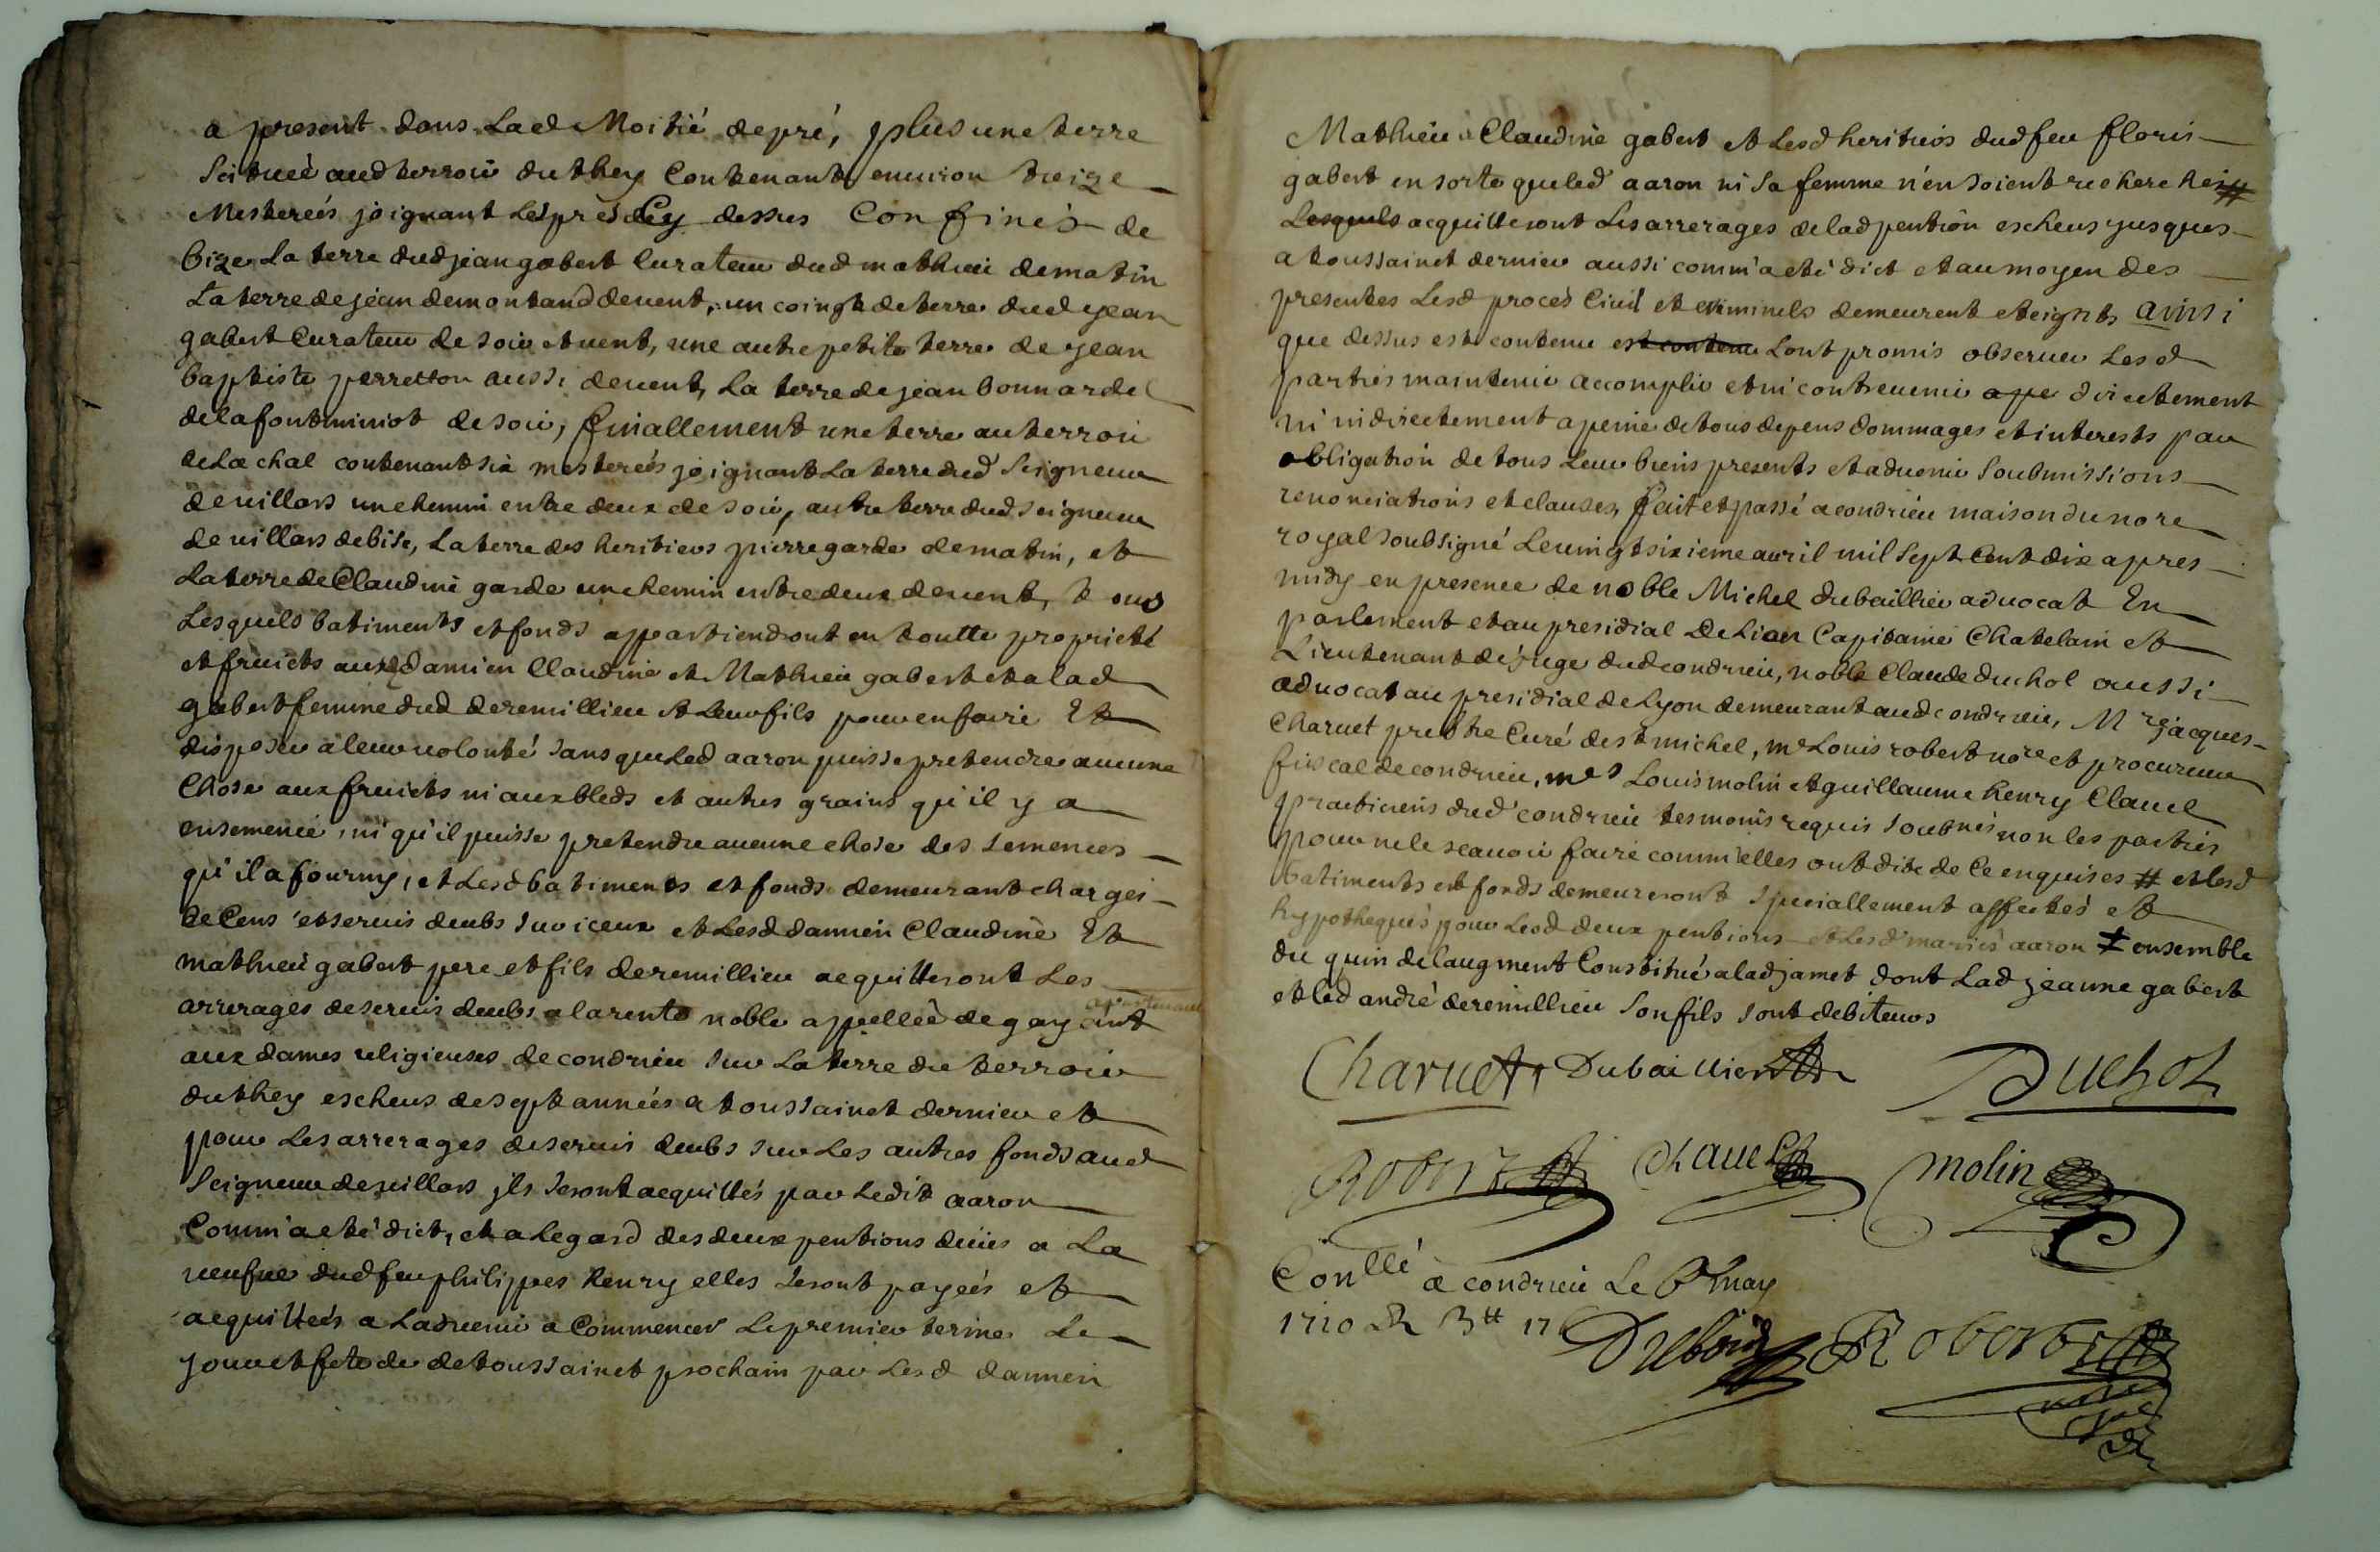 a present dans Lad Moitié de pré, plus une terre
Scituee aud terroir du they Contenant environ treize
Mesterées joignant Les prés Cy dessus Confinés de
bize La terre dud jean gabert Curateur dud mathieu de matin
La terre de jean demontand de vent, un coingt de terre dud jean
gabert Curateur de soir et vent, une autre petite terre de jean
baptiste perretton aussi de vent, La terre de jean bonnardel
de la font de soir, finallement une terre au terroir
de La chal contenant six mesterées joignant La terre dud Seigneur
de villars un chemin entre deux de soir, autre terre dud seigneur
de villars de bise, La terre des heritiers pierre garde de matin, et
La terre de Claudine garde un chemin entre deux de vent, tous
Lesquels batiments et fonds appartiendront en toutte proprieté
et fruicts auxd damien Claudine et Mathieu gabert et a lad
gabert femme dud deremillieu et Leur fils pour en faire Et
disposer a leur volonté sans que Led aaron puisse pretendre aucune
Chose aux fruicts ni aux bleds et autres grains qu'il y a
ensemencé, ni qu'il puisse pretendre aucune chose des semences
qu'il a fourny, et Lesd batiments et fonds demeurant chargés
de Cens et servis deubs sur iceux et Lesd damien Claudine Et
mathieu gabert pere et fils deremillieu acquitteront Les
arrerages de servis deubs a la rente noble appellée de gay apartenant ant
aux dames religieuses de condrieu sur La terre du terroir
du they escheus de sept années a toussainct dernier et
pour Les arrerages de servis deubs sur Les autres fonds aud
Seigneur de villars jls seront acquittés par Ledit aaron
Comm'a eté dict, et a Legard des deux pentions deues a La
veufve dud feu philippes henry elles seront payées et
acquittées a Ladvenir a Commencer Le premier terme Le
jour et fete de de toussainct prochain par Lesd damien
Mathieu Claudine gabert et Lesd heritiers dud feu floris
gabert en sorte que led aaron ni sa femme n'en soient recherchés #
Lesquels acquitteront Les arrerages de lad pention escheus jusques
a toussainct dernier aussi comm'a eté dict et au moyen des
presentes Lesd procés Civil et criminels demeurent eteignts ainsi
que dessus est contenu est contenu Lont promis observer Lesd
parties maintenir accomplir et ni contrevenir ape directement
ni indirectement a peine de tous depens dommages et interests par
obligation de tous Leur biens presents et advenir soubmissions
renonciations et clauses, fait et passé a condrieu maison du nore
royal soubsigné Le vingt sixieme avril mil sept Cent dix apres
midy en presence de noble Michel dubaillier advocat En
parlement et au presidial De Lion Capitaine Chatelain et
Lieutenant de juge dud condrieu, noble Claude duchol aussi
advocat au presidial de Lyon demeurant aud condrieu, Mre jacques
Charvet prebtre Curé de st michel, me Louis robert nore et procureur
fiscal de condrieu, mes Louis molin et guillaume henry Clavel
practiciens dud condrieu tesmoins requis soubnés non les parties
pour ne le scavoir faire comm'elles ont dit de Ce enquises # et lesd
batiments et fonds demeureront speciallement affectés et
hypothequés pour Lesd deux pentions et Lesd mariés aaron ≠ ensemble
du quin de laugment Constitué a lad jamet dont Lad jeanne gabert
et led andré deremillieu son fils sont debiteurs
Charvet Dubaillier Duchol
Robert Clavel molin
Conllé a condrieu Le may
1710
Robert